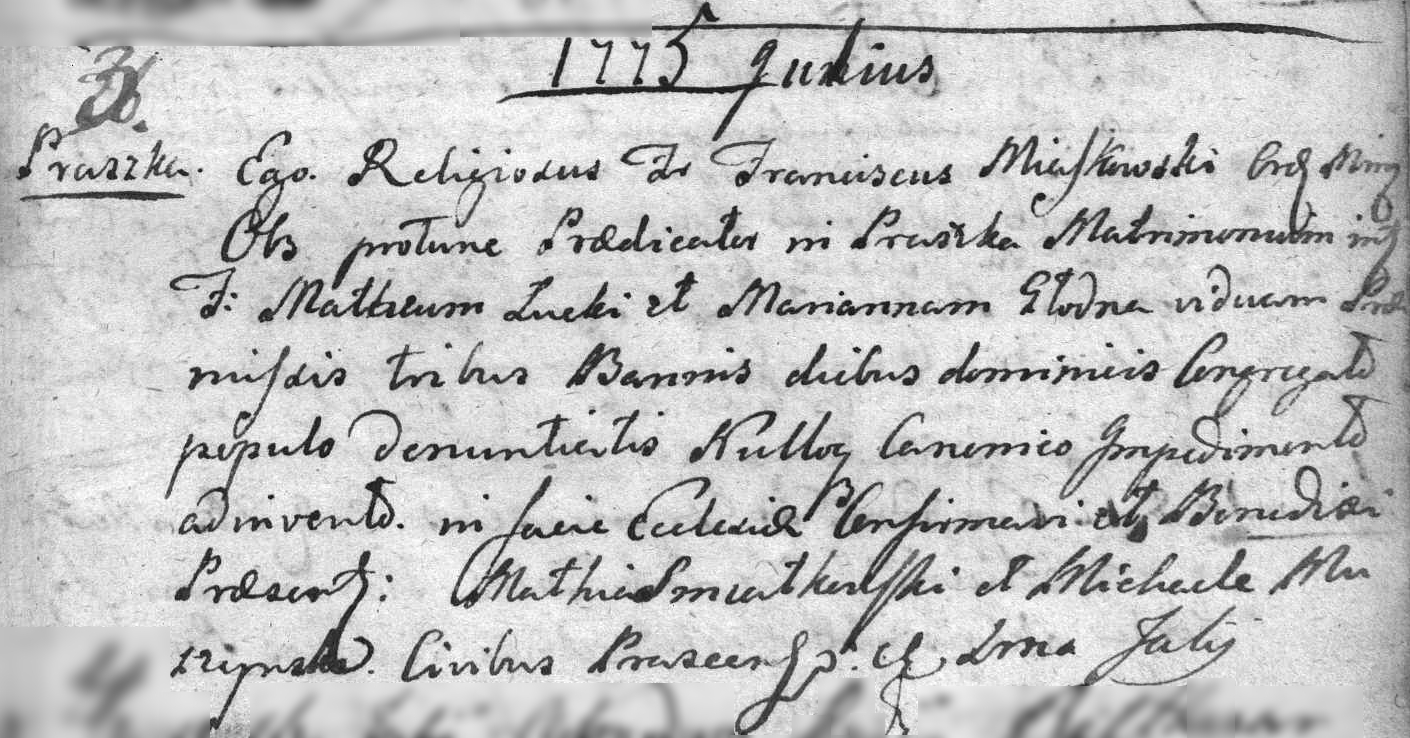 1775 Junius
Praszka. Ego Religiosus Fr Franciscus Miaskowski Ord Min
Obs protunc Prædicator in Praszka Matrimonium int
F: Mattheum Lucki et Mariannam Głodna viduam Præ
missis tribus Bannis diebus dominicis Congregato
populo denuntiatis Nulloq Canonico Impedimento
adinvento. in facie Ecclesiæ Confirmavi et Benedixi
Præsent: Mathia et Michaele Mu
szynski. Civibus Prascens